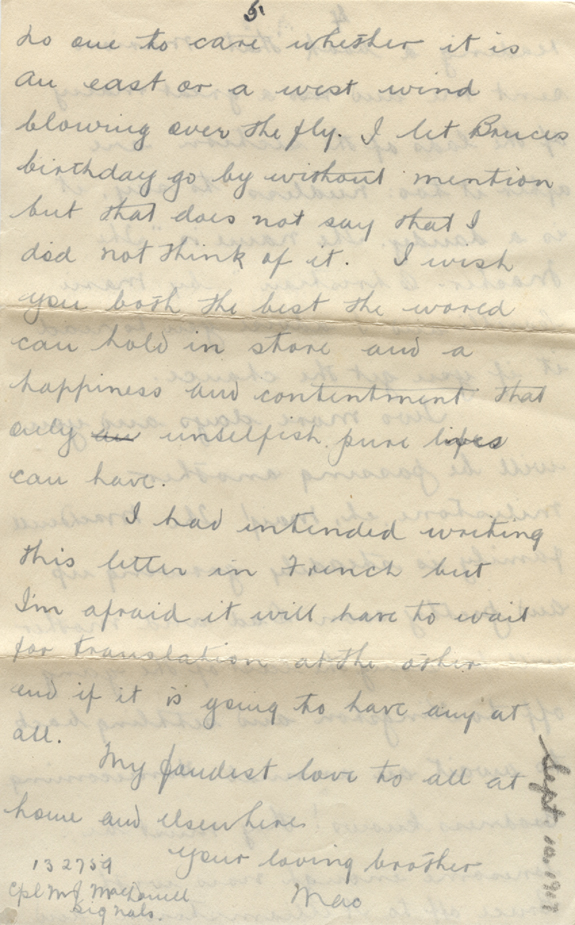 5
no one to care whether it is
an east or a west wind
blowing over the fly. I let Bruces
birthday go by without mention
but that does not say that I
did not think of it. I wish
you both the best the world
can hold in store and a
happiness and contentment that
only an unselfish pure lifes
can have.
I had intended writing
this letter in French but
I'm afraid it will have to wait
for translation at the other
end if it is going to have any at
all.
My fondest love to all at
home and elsewhere
Your loving brother
Mac
132759
Cpl M J MacDonell
Signals.
Sept. 10. 1917